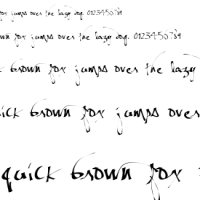 fox jumps over the lazy dog. 0123456789
own fox jumps over the lazy dog. 0123456789
k brown fox jumps over the lazy
uick brown fox jumps over
quick brown fox